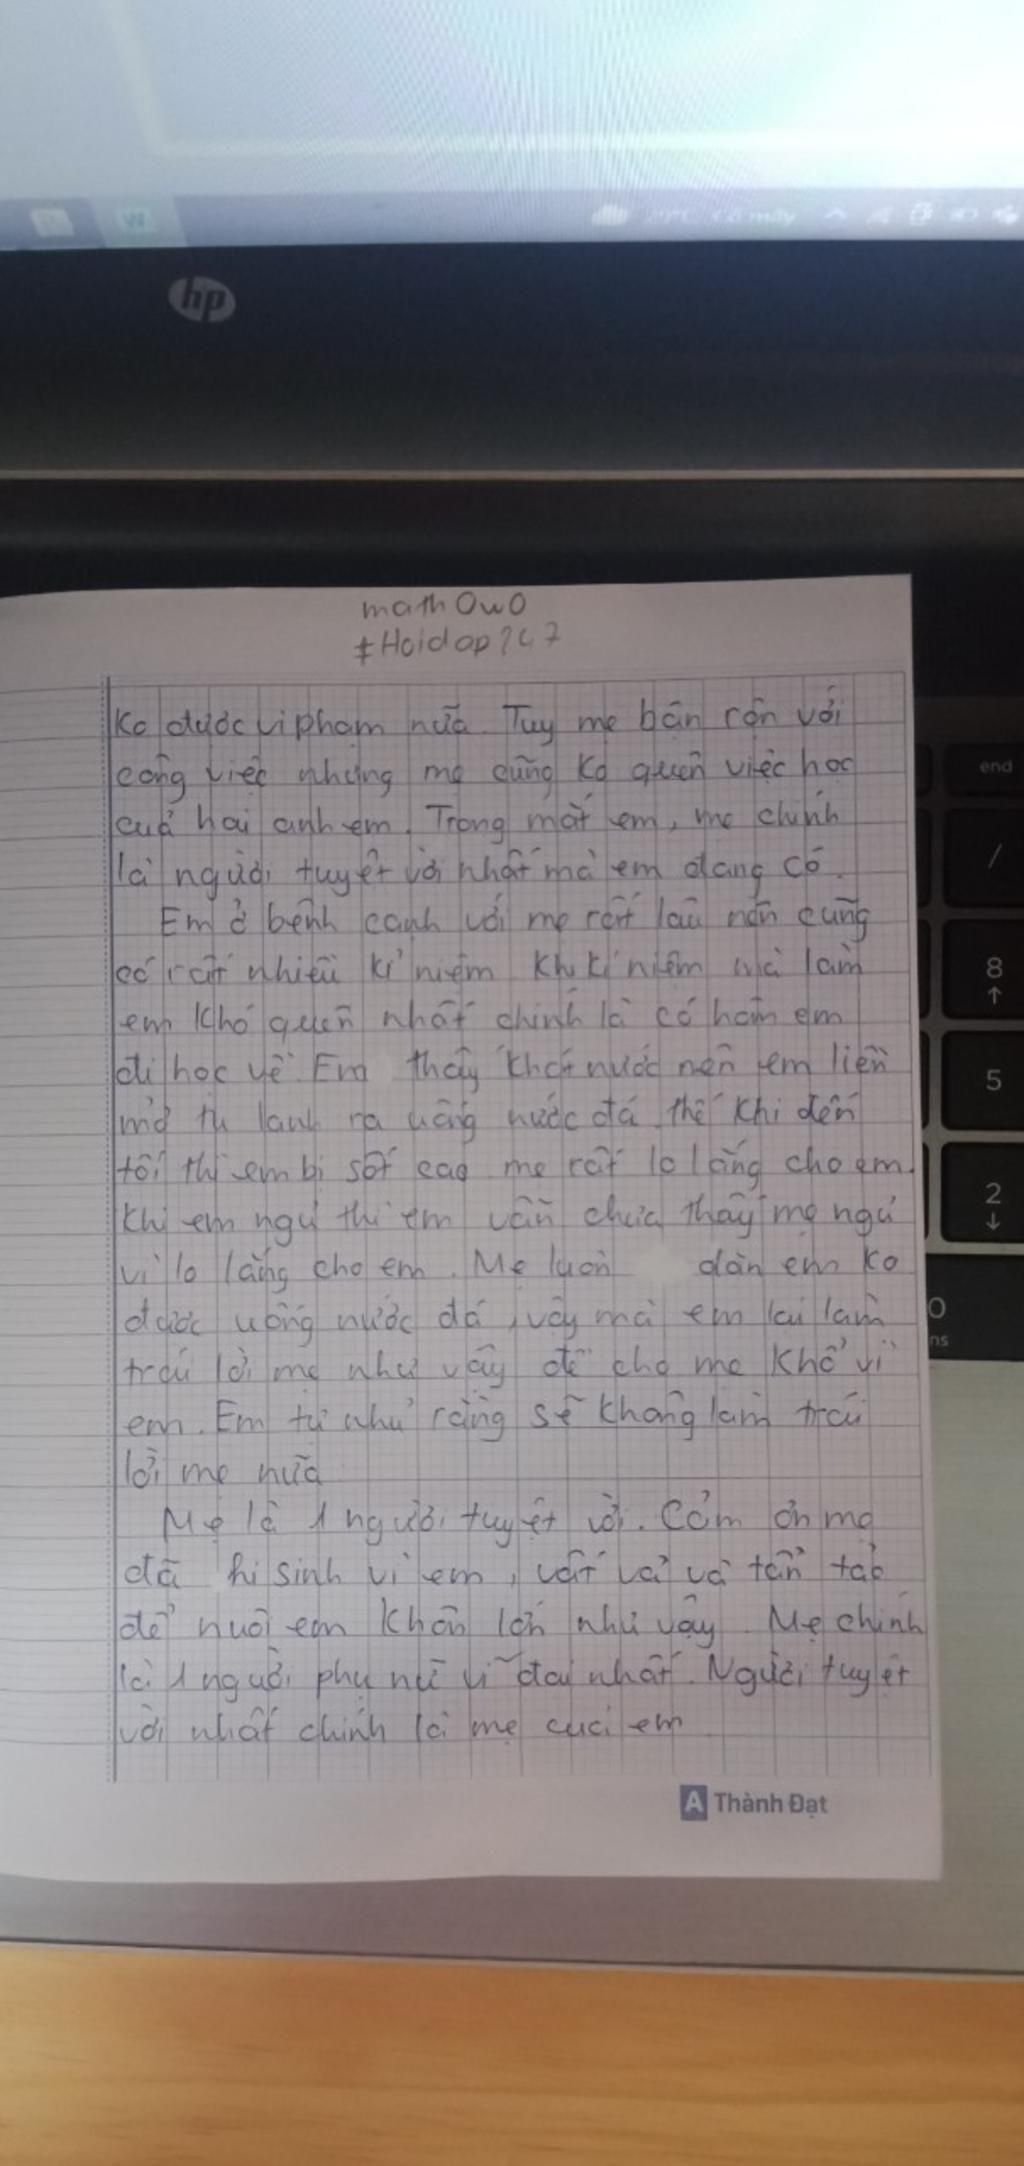 W
29°C Có mây
hp
math OwO
#Hoidap247
Ko được vi phạm nữa. Tuy mẹ bận rộn với
công việc nhưng mẹ cũng ko quên việc học
của hai anh em. Trong mắt em, mẹ chính
là người tuyệt vời nhất mà em đang có.
Em ở bênh cạnh với mẹ rất lâu nên cũng
có rất nhiều kỉ niệm kỉ niệm mà làm
em khó quên nhất chính là có hôm em
đi học về. Em thấy khát nước nên em liền
mở tủ lạnh ra uống nước đá thế khi đến
tối thì em bị sốt cao mẹ rất lo lắng cho em.
Khi em ngủ thì em vẫn chưa thấy mẹ ngủ
vì lo lắng cho em. Mẹ luôn dặn em ko
được uống nước đá, vậy mà em lại làm
trái lời mẹ như vậy để cho mẹ khổ vì
em. Em tự nhủ rằng sẽ không làm trái
lời mẹ nữa
Mẹ là 1 người tuyệt vời. Cảm ơn mẹ
đã hi sinh vì em, vất vả và tần tảo
để nuôi em khôn lớn như vậy. Mẹ chính
là 1 người phụ nữ vĩ đại nhất. Người tuyệt
vời nhất chính là mẹ của em
A Thành Đạt
end
/
8
↑
5
2
↓
0
ns